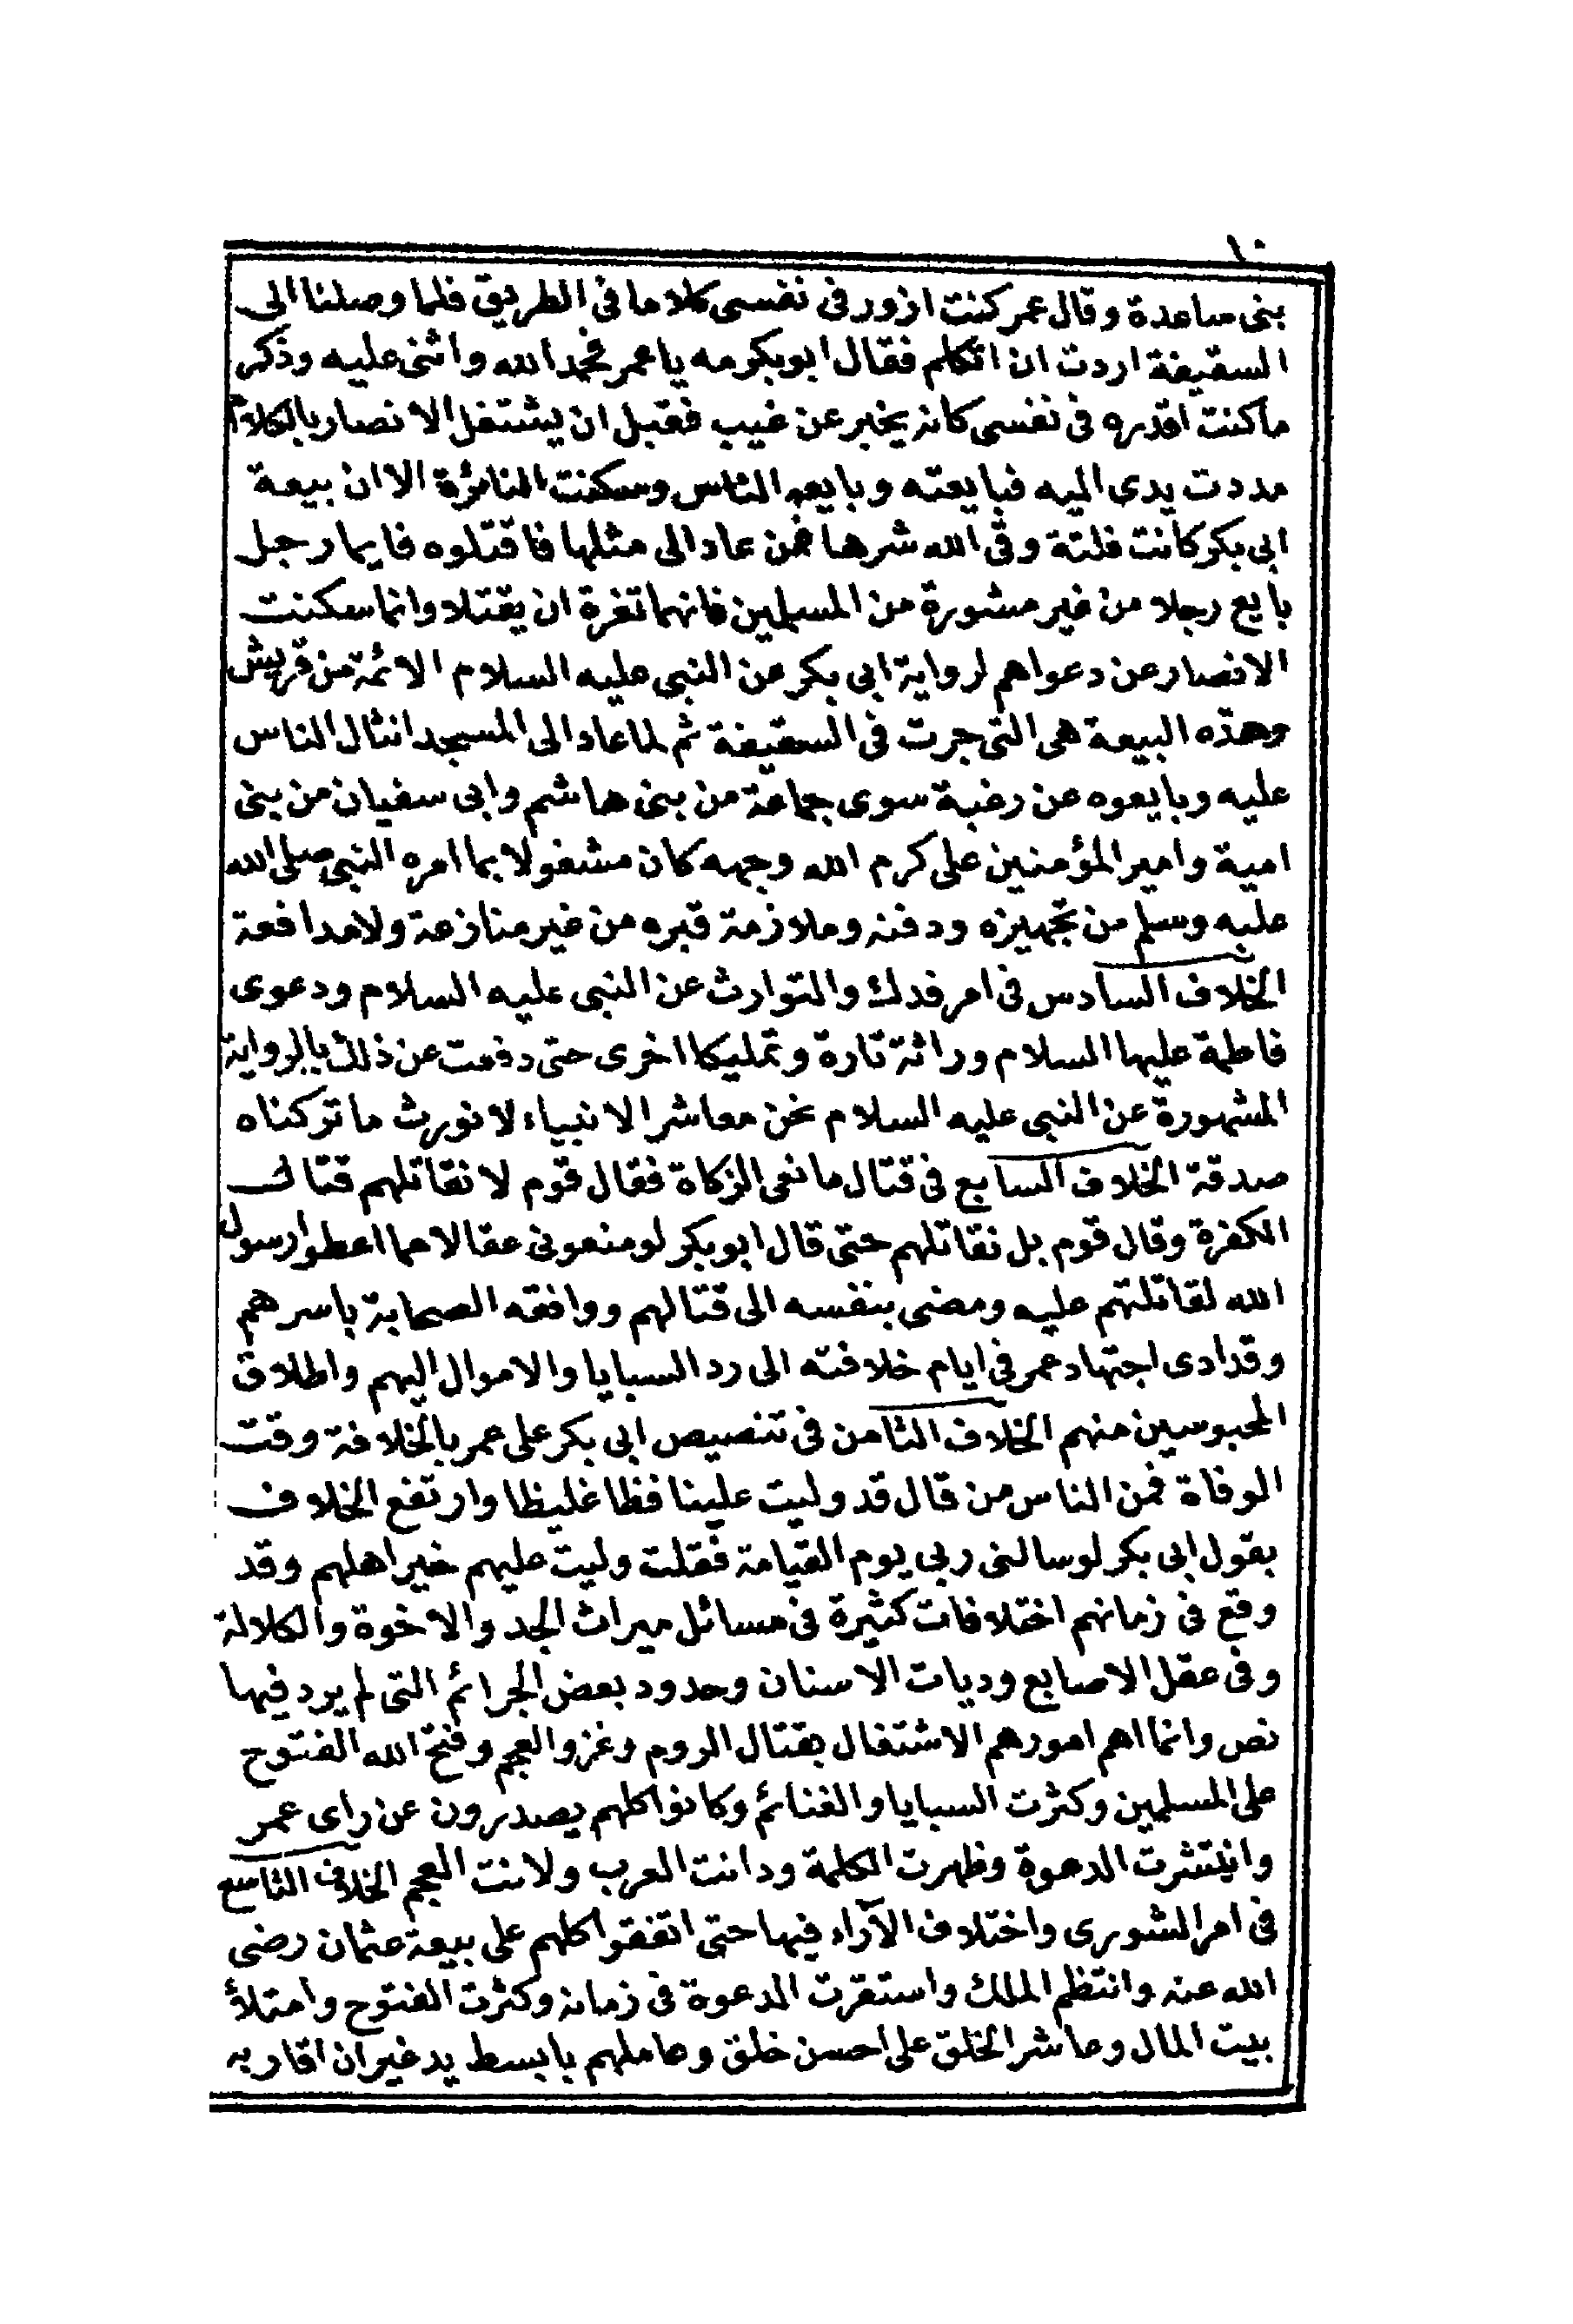 ١٠
بنى ساعدة وقال عمر كنت ازور فى نفسى كلاما فى الطريق فلما وصلنا الى
السقيفة اردت ان اتكلم فقال ابو بكر مه يا عمر فحمد الله واثنى عليه وذكر
ما كنت اقدره فى نفسى كانه يخبر عن غيب فقبل ان يشتغل الانصار بالكلام
مددت يدى اليه فبايعته وبايعه الناس وسكنت النائرة الا ان بيعة
ابى بكر كانت فلتة وقى الله شرها فمن عاد الى مثلها فاقتلوه فايما رجل
بايع رجلا من غير مشورة من المسلمين فانهما تغرة ان يقتلا وانما سكنت
الانصار عن دعواهم لرواية ابى بكر عن النبى عليه السلام الائمة من قريش
وهذه البيعة هى التى جرت فى السقيفة ثم لما عاد الى المسجد انثال الناس
عليه وبايعوه عن رغبة سوى جماعة من بنى هاشم وابى سفيان من بنى
امية وامير المؤمنين على كرم الله وجهه كان مشغولا بما امره النبى صلى الله
عليه وسلم من تجهيزه ودفنه وملازمة قبره من غير منازعة ولا مدافعة
الخلاف السادس فى امر فدك والتوارث عن النبى عليه السلام ودعوى
فاطمة عليها السلام وراثة تارة وتمليكا اخرى حتى دفعت عن ذلك بالرواية
المشهورة عن النبى عليه السلام نحن معاشر الانبياء لا نورث ما تركناه
صدقة الخلاف السابع فى قتال مانعى الزكاة فقال قوم لا نقاتلهم قتال
الكفرة وقال قوم بل نقاتلهم حتى قال ابو بكر لو منعونى عقالا مما اعطوا رسول
الله لقاتلتهم عليه ومضى بنفسه الى قتالهم ووافقه الصحابة باسرهم
وقد ادى اجتهاد عمر فى ايام خلافته الى رد السبايا والاموال اليهم واطلاق
المحبوسين منهم الخلاف الثامن فى تنصيص ابى بكر على عمر بالخلافة وقت
الوفاة فمن الناس من قال قد وليت علينا فظا غليظا وارتفع الخلاف
بقول ابى بكر لو سالنى ربى يوم القيامة فقلت وليت عليهم خير اهلهم وقد
وقع فى زمانهم اختلافات كثيرة فى مسائل ميراث الجد والاخوة والكلالة
وفى عقل الاصابع وديات الاسنان وحدود بعض الجرائم التى لم يرد فيها
نص وانما اهم امورهم الاشتغال بقتال الروم وغزو العجم وفتح الله الفتوح
على المسلمين وكثرت السبايا والغنائم وكانوا كلهم يصدرون عن راى عمر
وانتشرت الدعوة وظهرت الكلمة ودانت العرب ولانت العجم الخلاف التاسع
فى امر الشورى واختلاف الآراء فيها حتى اتفقوا كلهم على بيعة عثمان رضى
الله عنه وانتظم الملك واستقرت الدعوة فى زمانه وكثرت الفتوح وامتلأ
بيت المال وعاشر الخلق على احسن خلق وعاملهم بابسط يد غير ان اقاربه